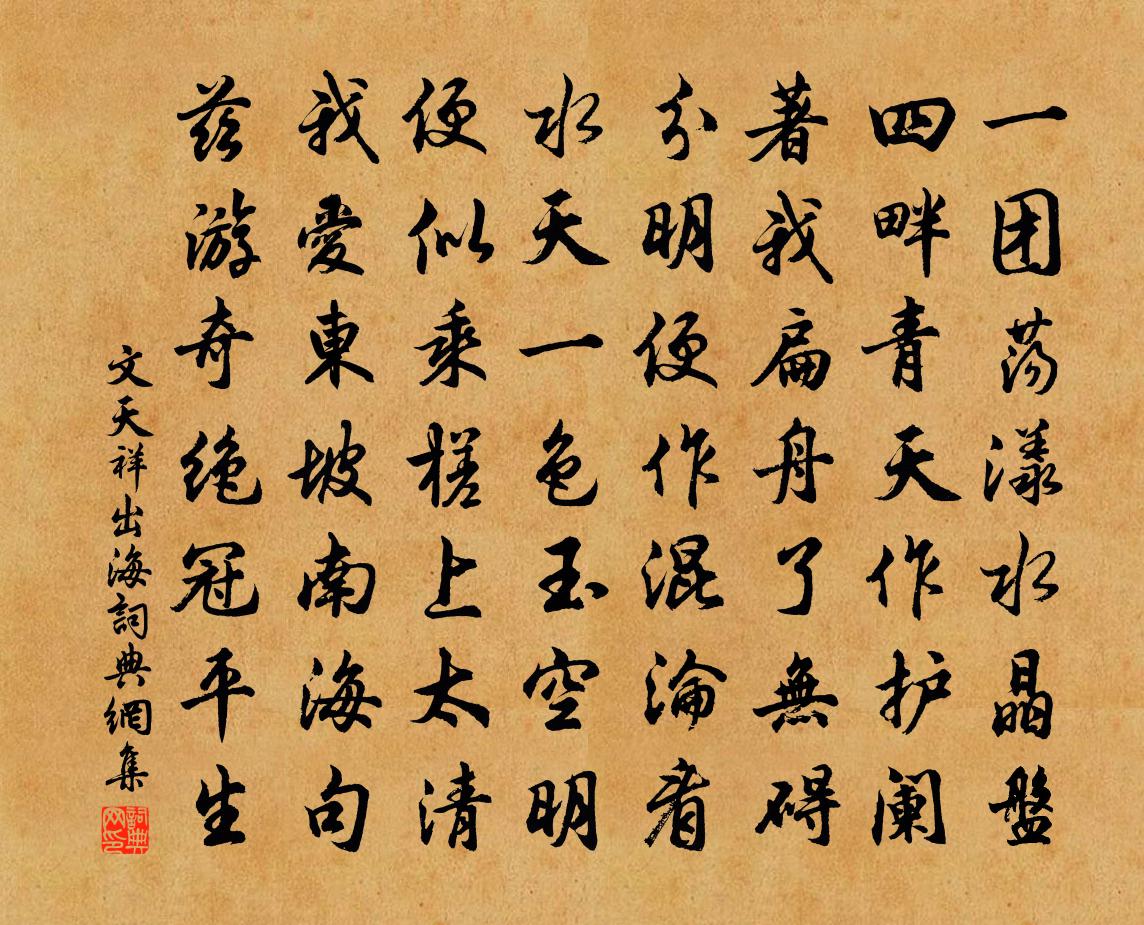 一团荡漾水晶盤
四畔青天作护阑
著我扁舟了無碍
分明便作混淪看
水天一色玉空明
便似乘槎上太清
我愛東坡南海句
茲游奇绝冠平生
文天祥出海詞典網集
詞典网印